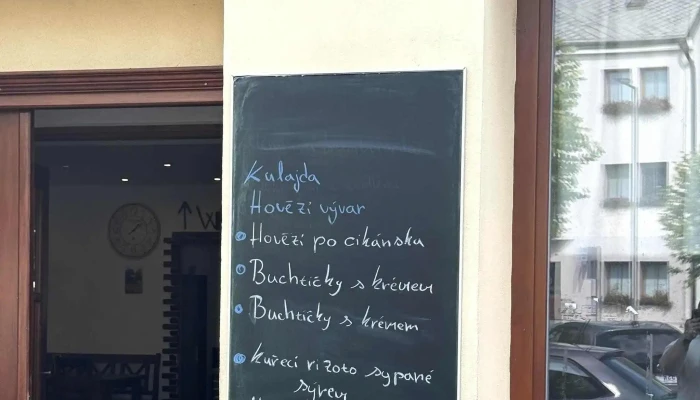 Kulajda
Hovězí vývar
Hovězí po cikánsku
Buchtičky s krémem
Buchtičky s krémem
Kuřecí rizoto sypané
sýrem